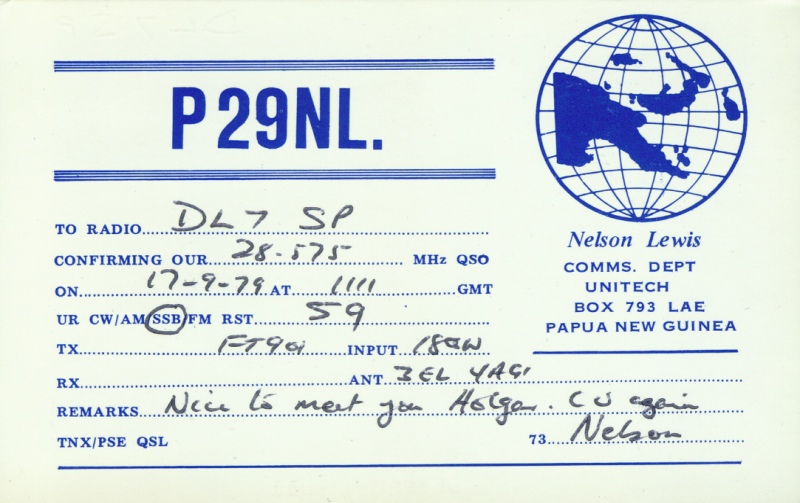 P29NL.
Nelson Lewis
COMMS. DEPT
UNITECH
BOX 793 LAE
PAPUA NEW GUINEA
TO RADIO DL7 SP
CONFIRMING OUR 28-575 MHz QSO
ON 17-9-79 AT 1111 GMT
UR CW/AM/SSB/FM RST 59
TX FT901 INPUT 180W
RX ANT 3EL YAGI
REMARKS Nice to meet you Holger. CU again
TNX/PSE QSL 73 Nelson